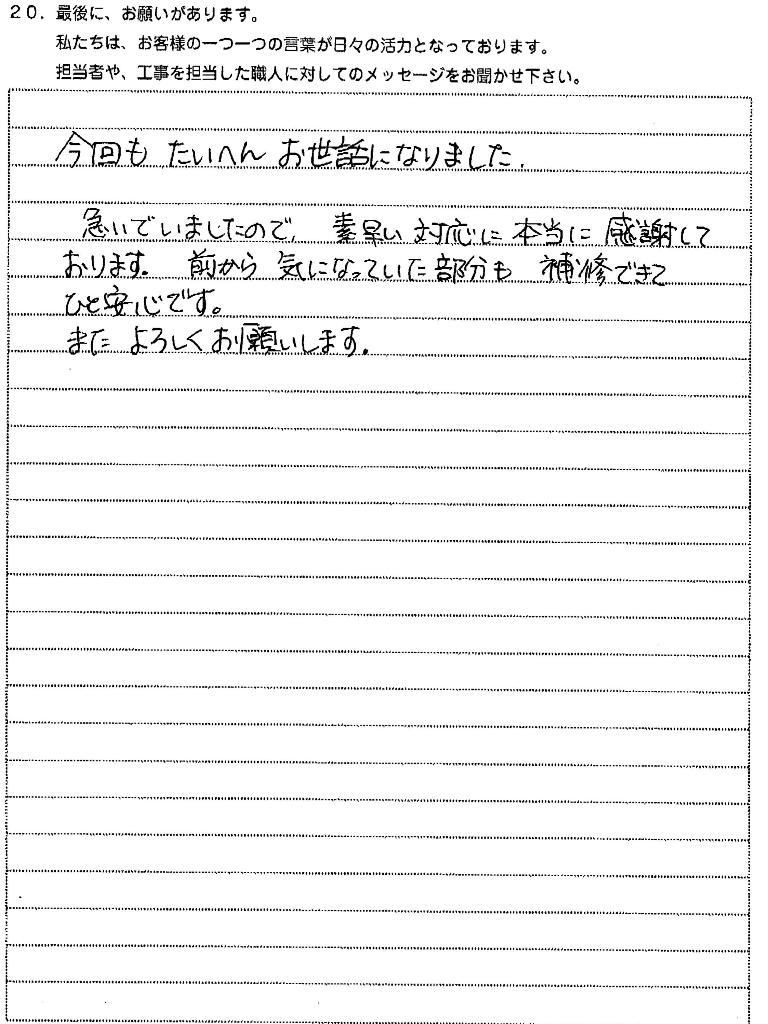 20．最後に、お願いがあります。
私たちは、お客様の一つ一つの言葉が日々の活力となっております。
担当者や、工事を担当した職人に対してのメッセージをお聞かせ下さい。
今回も たいへん お世話になりました．
急いでいましたので，素早い 対応に 本当に 感謝して
おります。 前から 気になっていた 部分も 補修できて
ひと安心です。
また よろしくお願いします．